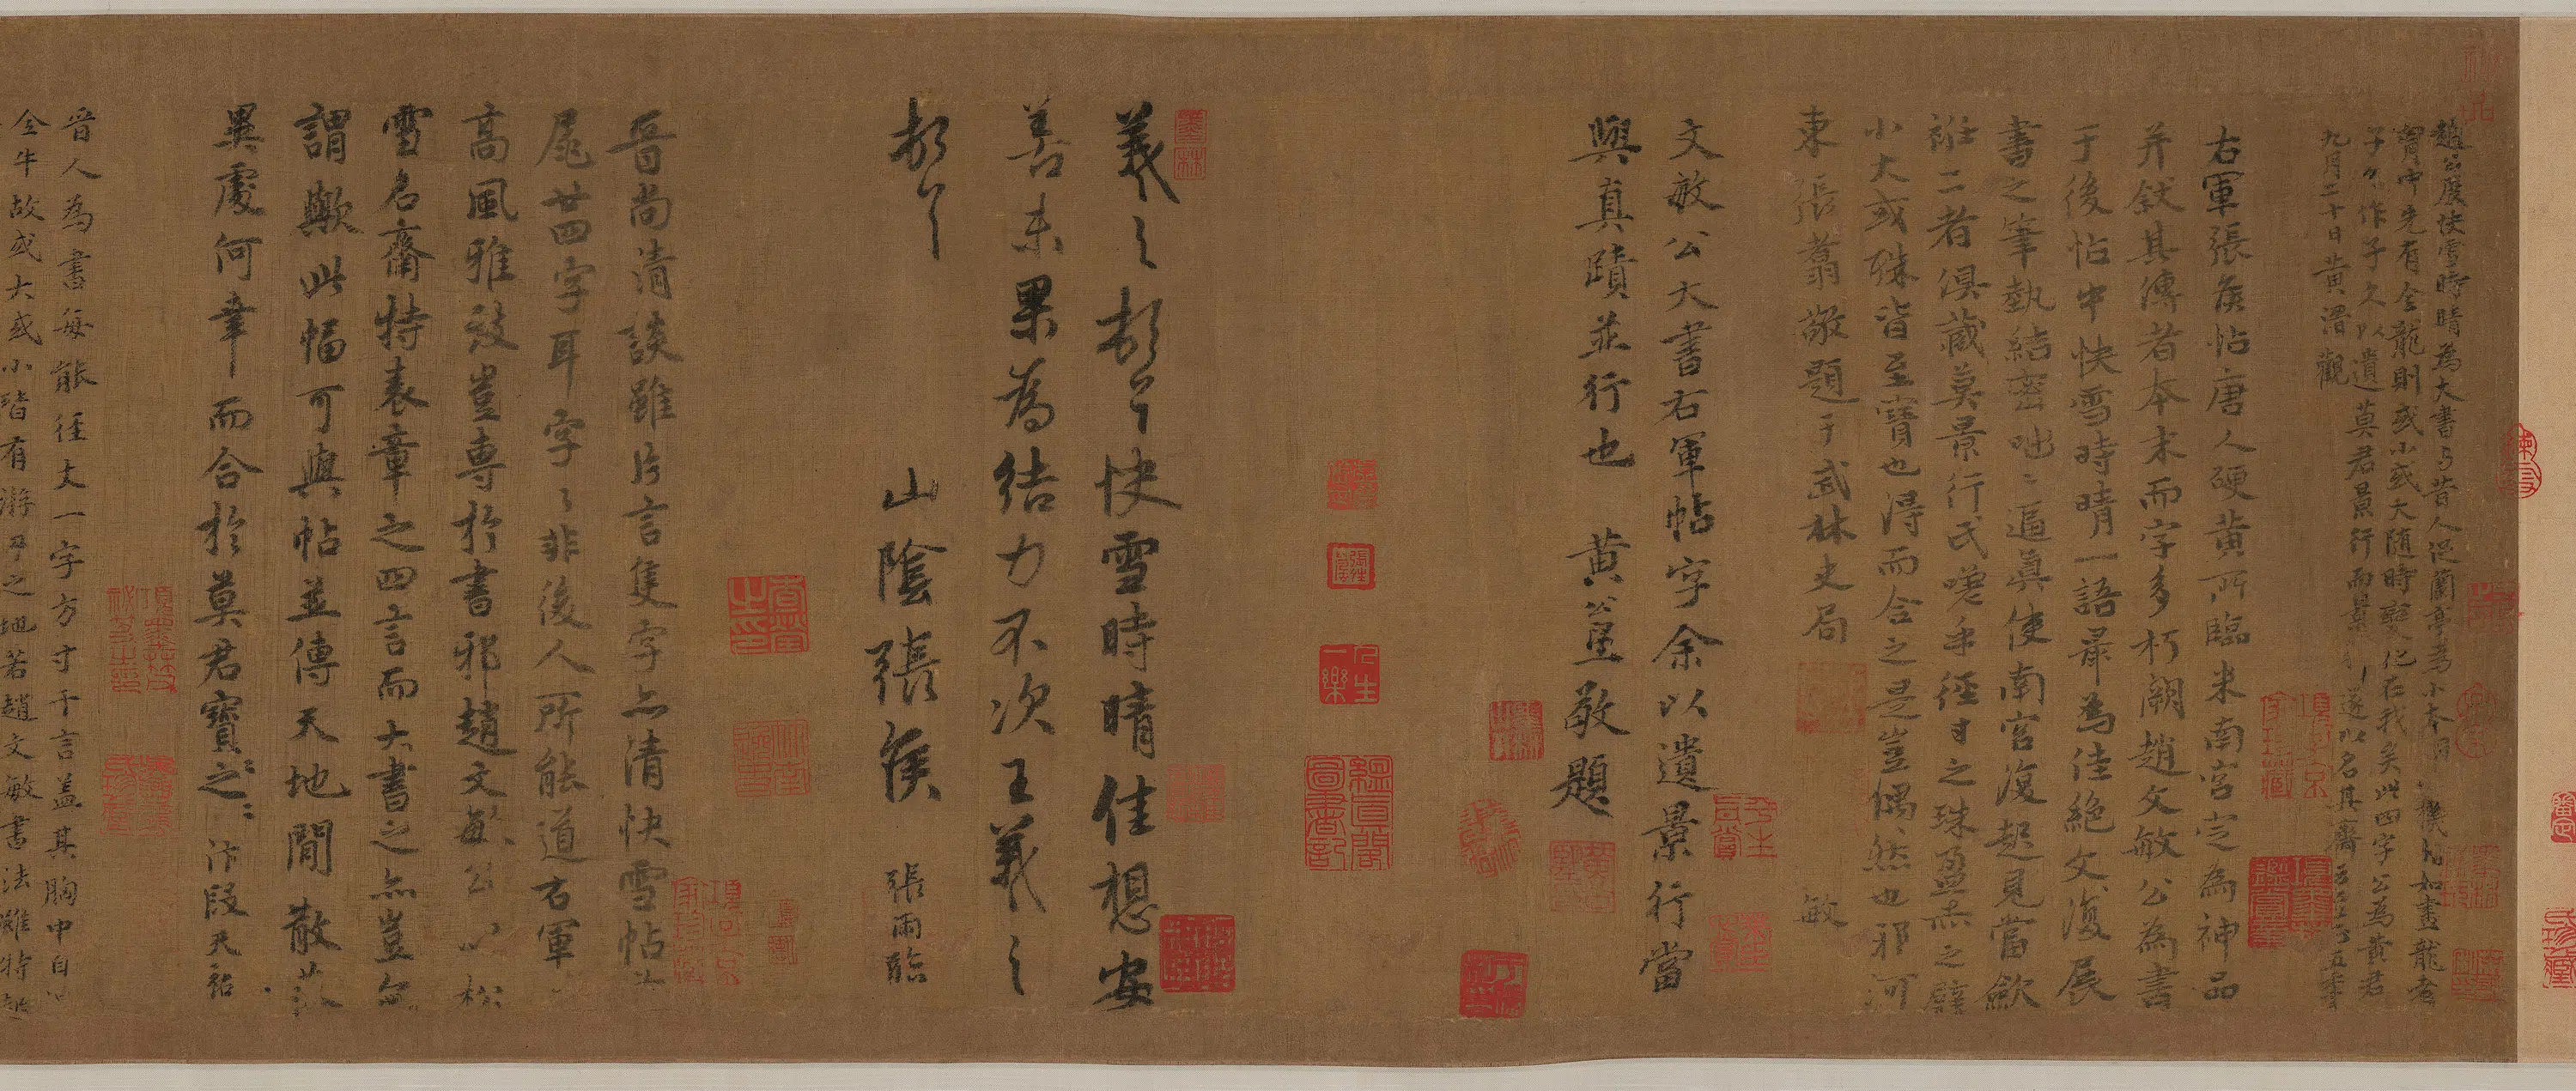 趙公展快雪時晴為大書与昔人促蘭亭為小本同一機如畫龍者
胷中先有全龍則或小或大隨時變化在我矣此四字公為黃君
子久作子久以遺莫君景行而景行遂以名其齋云至正五年
九月二十日黃溍觀
右軍張矦帖唐人硬黃所臨米南宮定為神品
并叙其傳者本末而字多朽闕趙文敏公為書
于後帖中快雪時晴一語最為佳絕文復展
書之筆埶結密咄々逼真使南宮復起見當歛
衽二者俱藏莫景行氏嗟乎徑寸之珠盈尺之璧
小大或殊皆至寶也得而合之是豈偶然也邪河
東張翥敬題于武林史局
敏
文敏公大書右軍帖字余以遺景行當
與真蹟並行也 黃公望敬題
羲之頓首快雪時晴佳想安
善未果為結力不次王羲之
頓首
山陰張矦
張雨臨
晉尚清談雖片言隻字亦清快雪帖首
尾廿四字耳字々非後人所能道右軍
高風雅致豈専於書邪趙文敏公以松
雪名齋特表章之四言而大書之亦豈無
謂歟此幅可與帖並傳天地間散落
異處何幸而合於莫君寶之寶之 汴段天祐
晉人為書每能徑丈一字方寸千言盖其胸中自有
全牛故或大或小皆有游刃之地若趙文敏書法雖特起